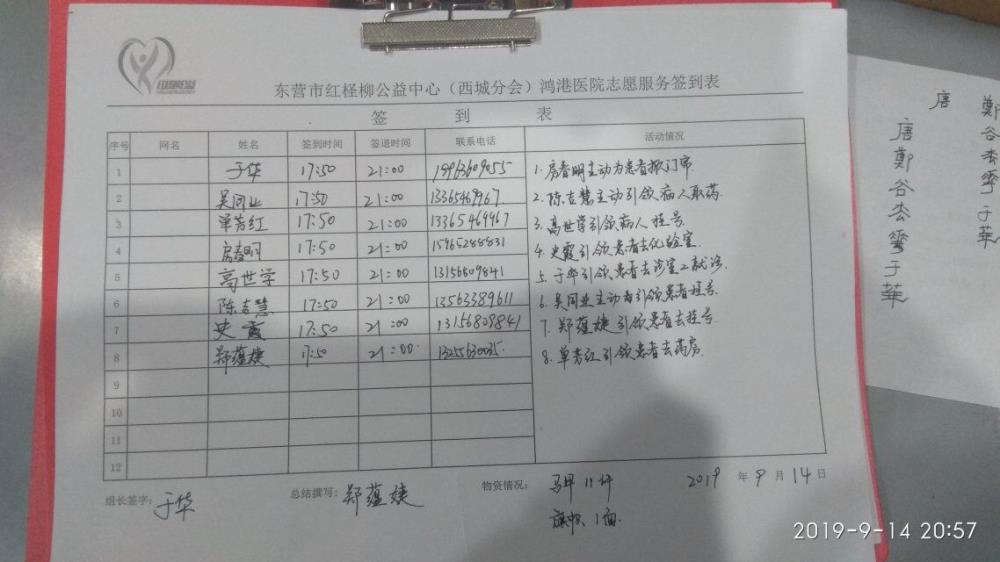 东营市红柽柳公益中心（西城分会）鸿港医院志愿服务签到表
签 到 表
序号 网名 姓名 签到时间 签退时间 联系电话 活动情况
1 于华 17:50 21:00
2 吴同业 17:50 21:00 13365469967
3 单芳红 17:50 21:00 13365469967
4 房春明 17:50 21:00 15965288831
5 高世学 17:50 21:00 13156809841
6 陈吉慧 17:50 21:00 13563389611
7 史霞 17:50 21:00 13156809841
8 郑蕴婕 17:50 21:00
9
10
11
12
1. 房春明主动为患者掀门帘
2. 陈吉慧主动引领病人取药.
3. 高世学引领病人挂号.
4. 史霞引领患者去化验室
5. 于华引领患者去诊室二就诊
6. 吴同业主动引领患者挂号.
7. 郑蕴婕引领患者去挂号.
8. 单芳红引领患者去药房.
组长签字：于华 总结撰写：郑蕴婕 物资情况： 马甲11件 2019 年 9 月 14 日
旗帜、1面.
鄭谷
于華
唐
唐鄭谷
于華
2019-9-14 20:57